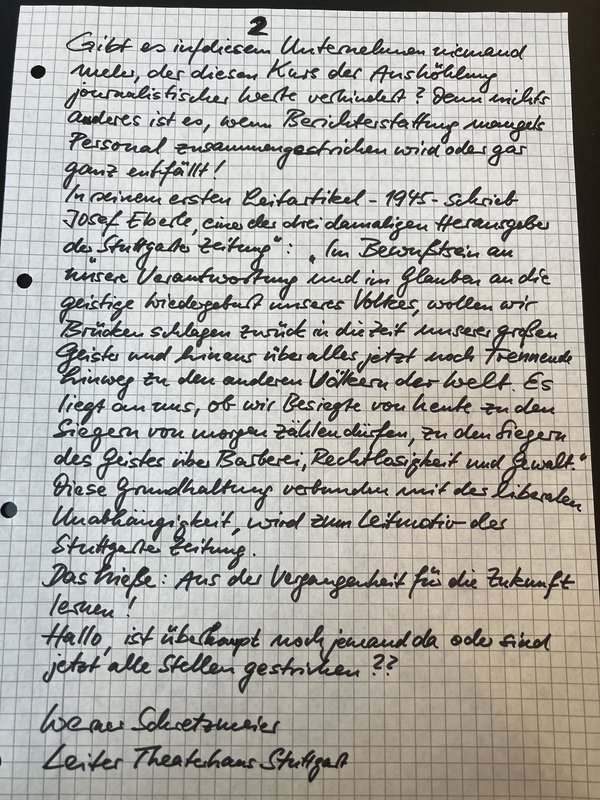 2
Gibt es in diesem Unternehmen niemand
mehr, der diesen Kurs der Aushöhlung
journalistischer Werte verhindert? Denn nichts
anderes ist es, wenn Berichterstattung mangels
Personal zusammengestrichen wird oder gar
ganz entfällt!
In seinem ersten Leitartikel - 1945 - schrieb
Josef Eberle, einer der drei damaligen Herausgeber
der Stuttgarter Zeitung": „Im Bewußtsein an
unsere Verantwortung und im Glauben an die
geistige Wiedergeburt unseres Volkes, wollen wir
Brücken schlagen zurück in die Zeit unserer großen
Geister und hinaus über alles jetzt noch Trennende
hinweg zu den anderen Völkern der Welt. Es
liegt an uns, ob wir Besiegte von heute zu den
Siegern von morgen zählen dürfen, zu den Siegern
des Geistes über Barberei, Rechtlosigkeit und Gewalt."
Diese Grundhaltung verbunden mit der liberalen
Unabhängigkeit, wird zum Leitmotiv der
Stuttgarter Zeitung.
Das hieße: Aus der Vergangenheit für die Zukunft
lernen!
Hallo, ist überhaupt noch jemand da oder sind
jetzt alle Stellen gestrichen??
Werner Schretzmeier
Leiter Theaterhaus Stuttgart